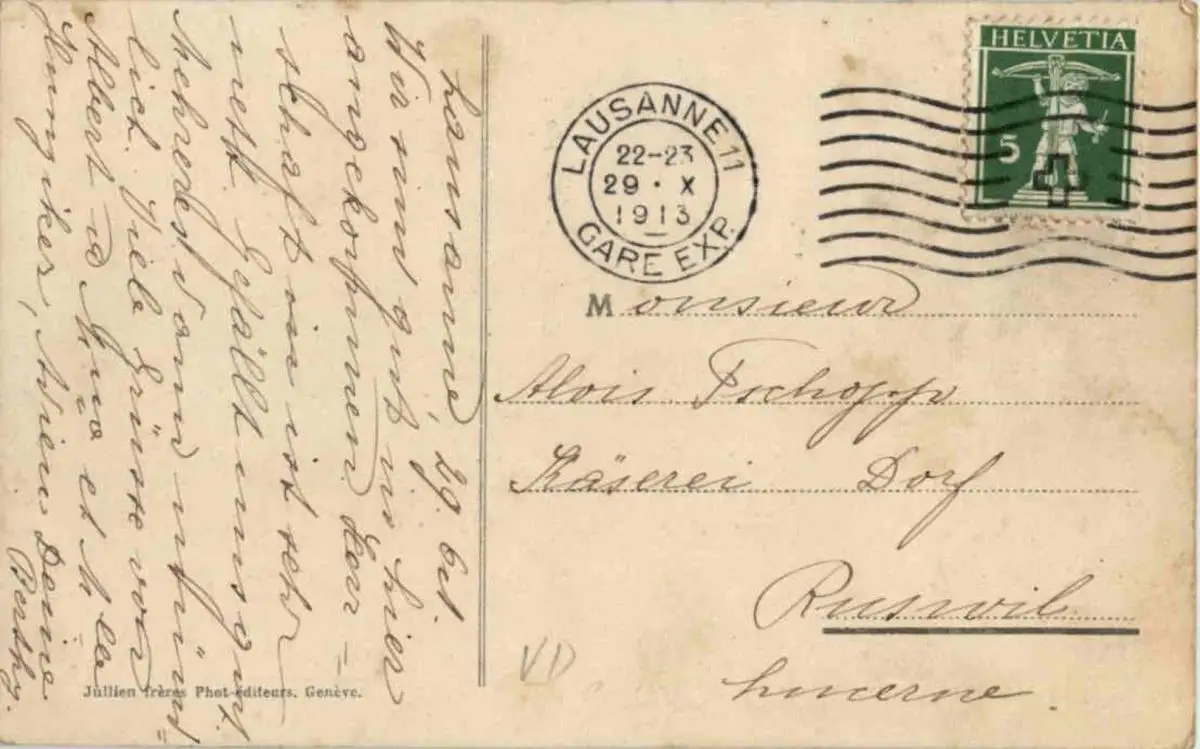 Lausanne, 29. Oct.
Wir sind gut in hier
angekommen. Herr=
schaft sie ist sehr
nett. Gefällt uns gut.
Mehreres dann münd=
lich. Viele Grüsse von
Albert
Deine
Berthy.
Jullien frères Phot-éditeurs, Genève.
LAUSANNE 11
22-23
29 · X
1913
GARE EXP.
HELVETIA
5
Monsieur
Alois Tschopp
Käserei Dorf
Ruswil
Lucerne.
VD